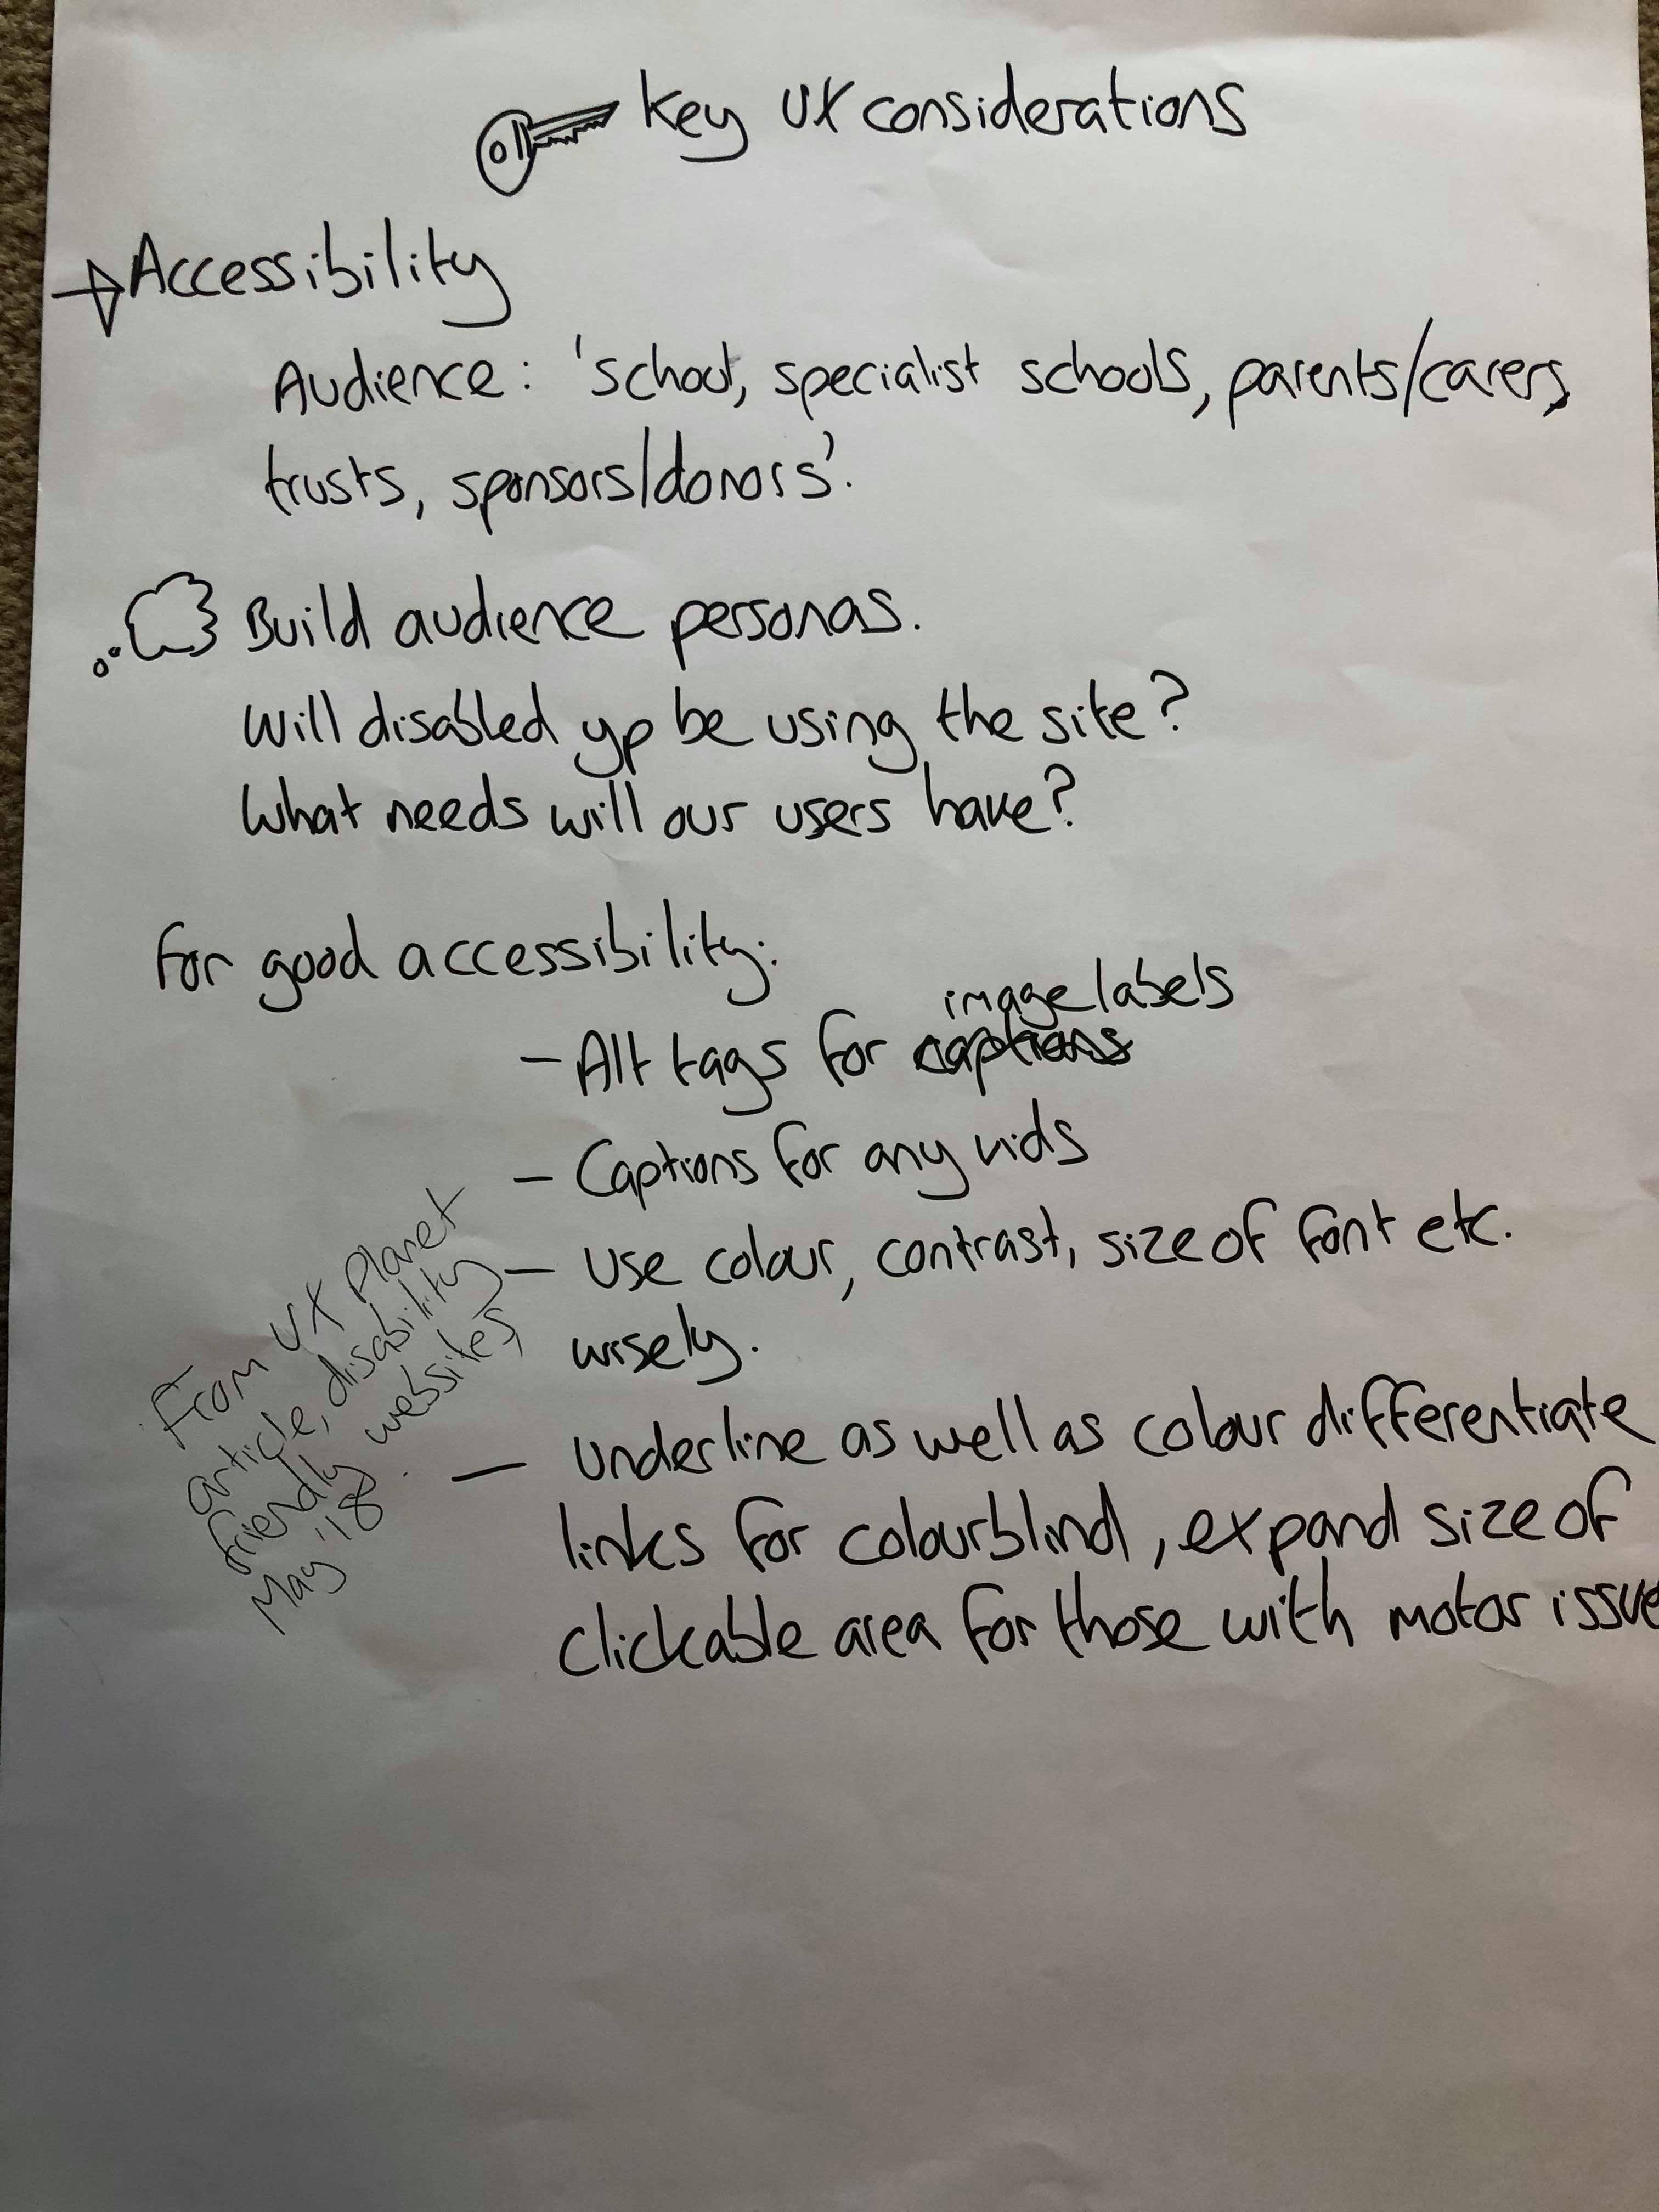 Key UX considerations
Accessibility
Audience: 'school, specialist schools, parents/carers,
trusts, sponsors/donors'.
Build audience personas.
Will disabled yp be using the site?
What needs will our users have?
For good accessibility:
image labels
- Alt tags for captions
- Captions for any vids
- Use colour, contrast, size of font etc.
wisely.
- Underline as well as colour differentiate
links for colourblind, expand size of
clickable area for those with motor issue
From UX Planet
article, disability
friendly websites,
May '18.